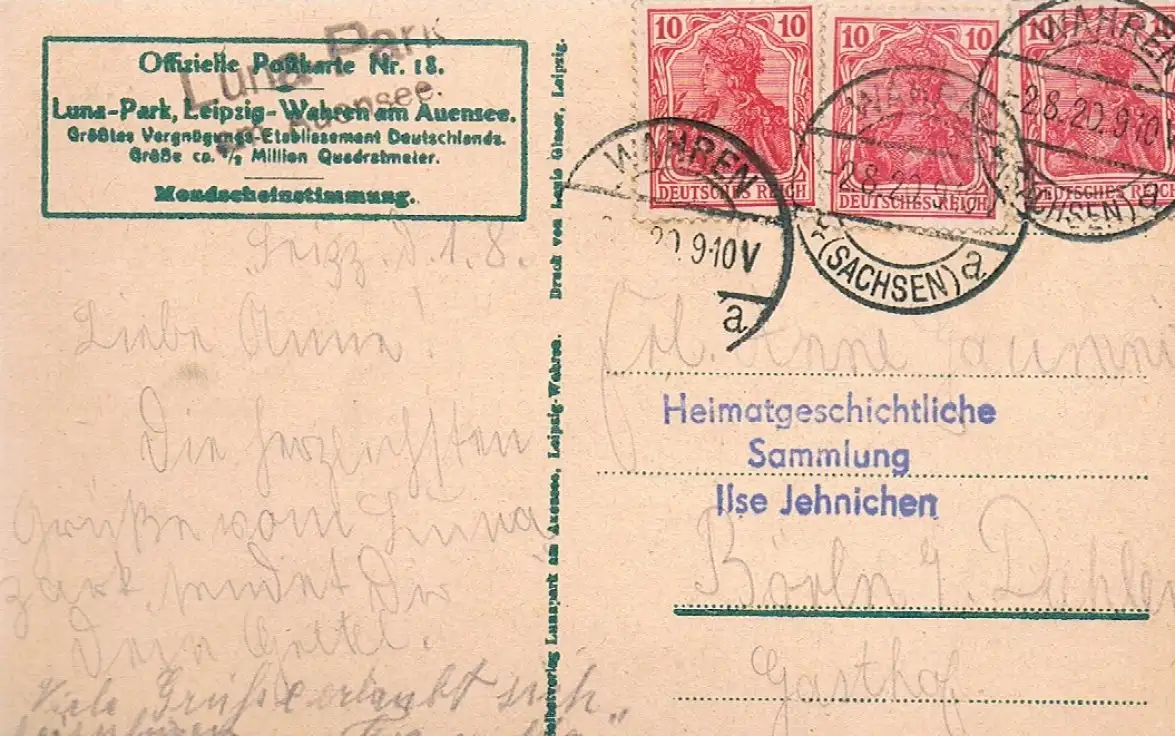 Offizielle Postkarte Nr. 18.
Luna-Park, Leipzig-Wahren am Auensee.
Größtes Vergnügungs-Etablissement Deutschlands.
Größe ca. 1/2 Million Quadratmeter.
Mondscheinstimmung.
Luna Park
Auensee.
Leipz. d. 1. 8.
Liebe Anna!
Die herzlichsten
Grüße vom Luna
park sendet Dir
Dein
Viele Grüße erlaubt sich
Selbstverlag Lunapark am Auensee, Leipzig-Wahren. Druck von Leipzig.
10 10
DEUTSCHES REICH
10 10
DEUTSCHES REICH
10
DEUTSCHES REICH
WAHREN
20.9-10V
a
WAHREN
-2.8.20.9
*(SACHSEN) a
WAHREN
-2.8.20.9-10
(SACHSEN) a
Frl. Anna
Heimatgeschichtliche
Sammlung
Ilse Jehnichen
Börln Dahlen
Gasthof